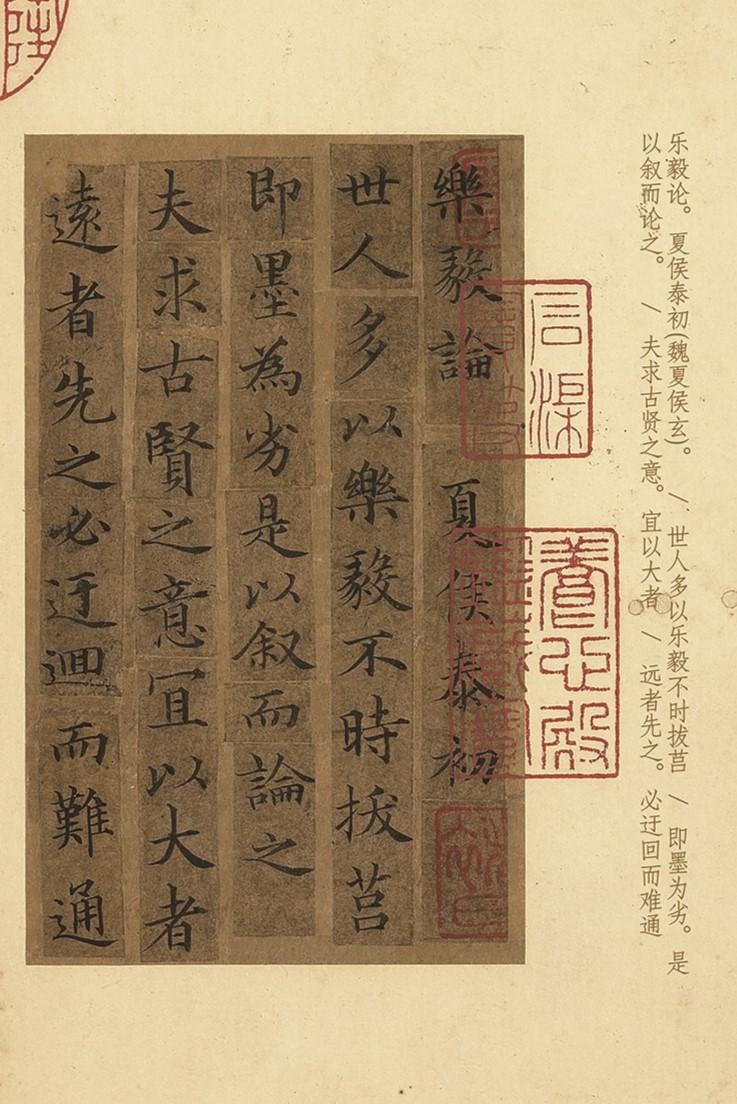 乐毅论。夏侯泰初(魏夏侯玄)。 \ 世人多以乐毅不时拔莒 \ 即墨为劣。是
以叙而论之。 \ 夫求古贤之意。宜以大者 \ 远者先之。必迂回而难通
養心殿
石渠
樂毅論 夏侯泰初
世人多以樂毅不時拔莒
即墨為劣是以叙而論之
夫求古賢之意宜以大者
遠者先之必迂迴而難通